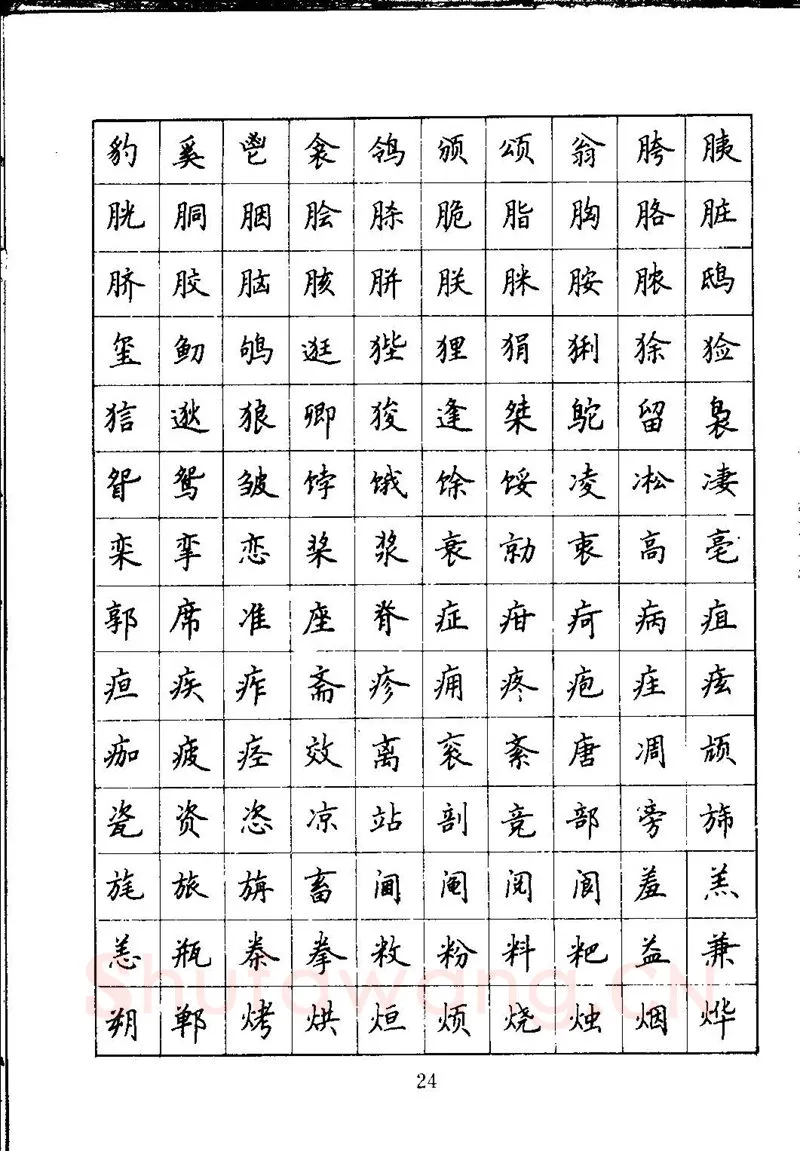 豹奚鬯衾鸰颁颂翁胯胰
胱胴胭脍胨脆脂胸胳脏
脐胶脑胲胼朕脒胺脓鸱
玺鱽鸲逛狴狸狷猁狳猃
狺逖狼卿狻逢桀鸵留袅
眢鸳皱饽饿馀馁凌凇凄
栾挛恋桨浆衰勍衷高亳
郭席准座脊症疳疴病疽
疸疾痄斋疹痈疼疱疰痃
痂疲痉效离衮紊唐凋颃
瓷资恣凉站剖竞部旁旆
旄旅旃畜阃阄阅阆羞羔
恙瓶桊拳敉粉料粑益兼
朔郸烤烘烜烦烧烛烟烨
Shufawang.CN
24